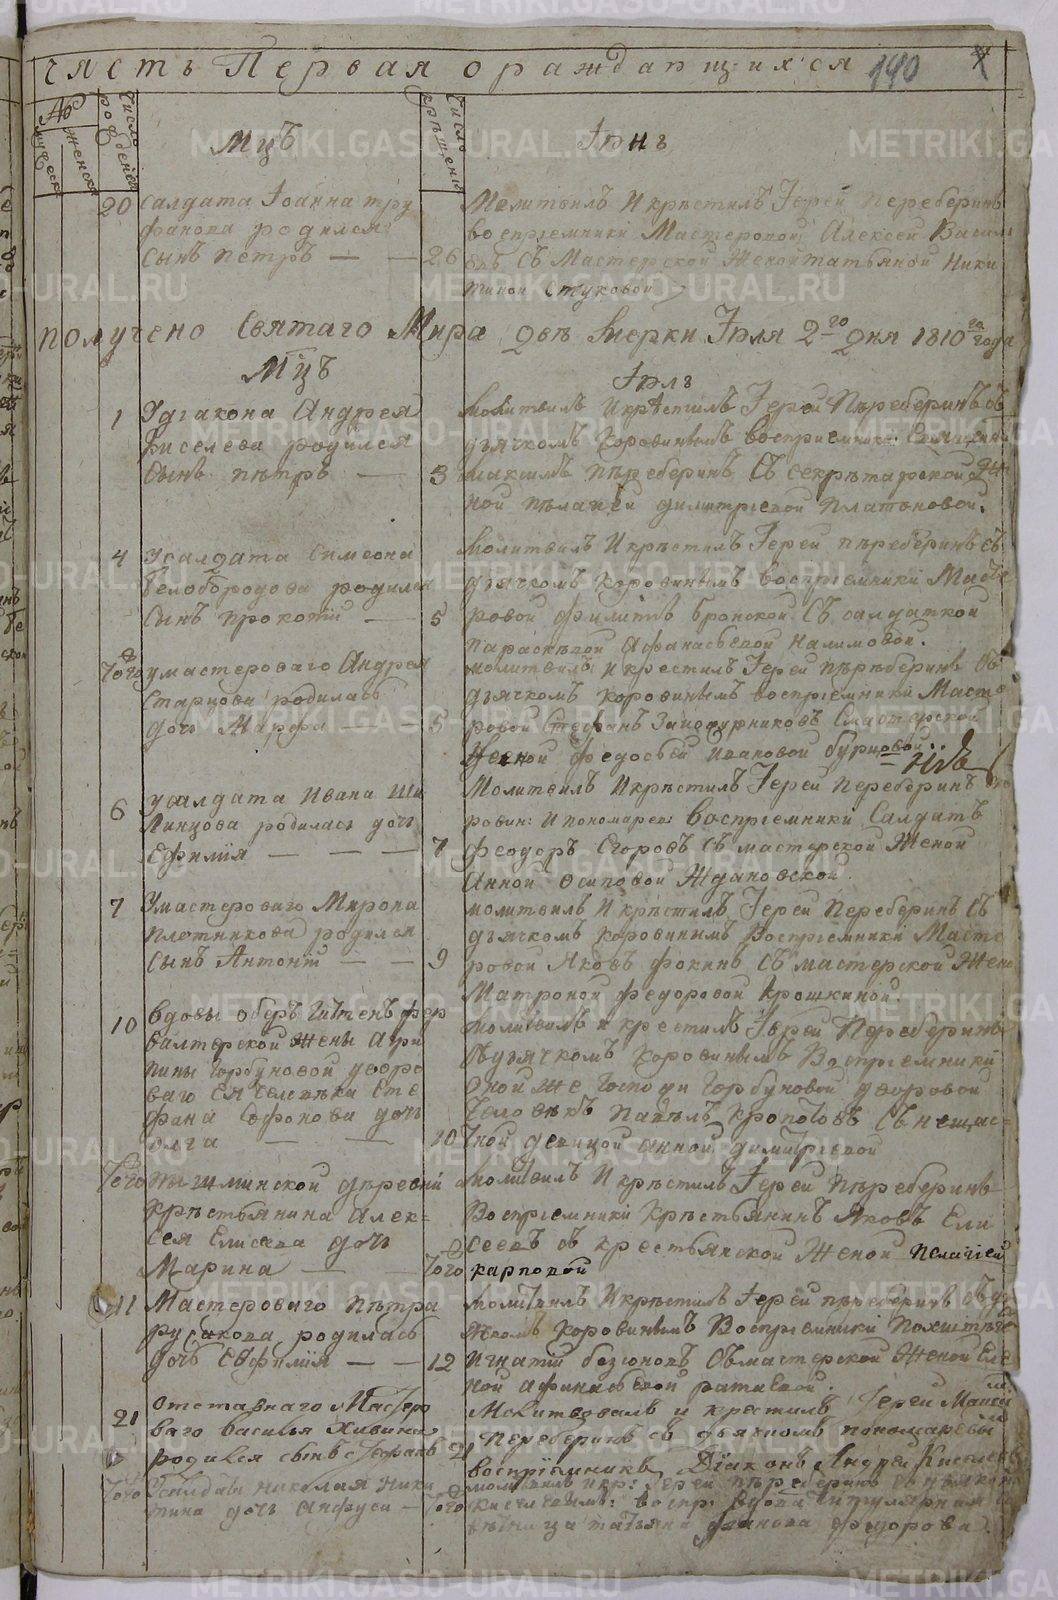 часть Первая о раждающихся 140
№
мужеска
женска
число рождения
Мцъ
число крещения
Іюнь
20 салдата Іоанна тру
фанова родился
сынъ петръ — — 26
Молитвилъ И крѣстилъ Іерей Переберинъ
воспріемники Мастеровой Алексей Васил
съ Мастерской Женой татьяной Ники
тиной Стуковой
получено Святаго Мира две Мерки Іюля 2го дня 1810го года
Мцъ
Іюль
1 У діакона Андрея
Киселева родился
сынъ пѣтръ — 3
Молитвилъ И крѣстилъ Іерей Пѣреберинъ съ
дьячкомъ Коровинымъ воспріемники Священни
максимъ пѣреберинъ Съ секрѣтарской Же
ной пѣлагѣей димитріевой Платоновой.
4 У салдата Симеона
Белобородова родился
сынъ прокопій — 5
Молитвилъ И крѣстилъ Іерей пѣреберинъ съ
дьячкомъ Коровинымъ воспріемники Масте
ровой филиппъ бронской Съ салдаткой
параскѣвой Афанасьевой Налимовой.
Того умастероваго Андрея
Старцова родилась
дочь Марфа — 5
молитвилъ и крестилъ Іерей пѣрѣберинъ Съ
дьячкомъ коровинымъ воспріемники Масте
ровой Стефанъ Съмастерской
Женой федосьей Ивановой бурцовой..
6 усалдата Ивана Ши
линцова родилась дочь
Ефимія — — — 7
Молитвилъ И крѣстилъ Іерей Переберинъ
ровин: И пономарев: воспріемники Салдатъ
феодоръ Егоровъ Съ мастерской Женой
Анной Осиповой Ждановской.
7 Умастероваго Мирона
плотникова родился
сынъ Антоній — — 9
молитвилъ И крѣстилъ Іерей Переберинъ Съ
дьячкомъ Коровинымъ Воспріемники Масте
ровой Яковъ фокинъ Съ мастерской Жено
Матроной федоровой Крошкиной
10 вдовы обѣръ Гитенъ фер
валтерской жены Агри
пины Горбуновой дворо
ваго Ея человѣка Сте
фана Софонова дочь
Олга — — 10
Молитвилъ и крестилъ Іерей Переберинъ
Съдьячкомъ Коровинымъ Воспріемники
Оной же Госпожи Горбуновой дворовой
Человѣкъ павелъ Кропотовъ Съ нещас-
ной девицой анной димитріевой
Того пышминской дѣревни
крѣстьянина Алек-
сея Елисева дочь
Марина — — Того
молитвилъ И крѣстилъ Іерей Пѣреберинъ
Воспріемники Крѣстьянинъ Яковъ Ели
сеевъ съ крестьянской Женой пелагіей
карповой
11 Мастероваго пѣтра
русакова родилась
дочь Евфимія — — 12
молитвилъ И крѣстилъ Іерей пѣреберинъ Съ дь
ячкомъ Коровинымъ Воспріемники
Игнатій безсоновъ Съмастерской Женой Еле
ной афанасьевой
21 отставнаго Мастеро
ваго василья Хивина
родился сынъ Стефанъ 21
Молитвовалъ и крестилъ Іерей Максим
Переберинъ съ дьячкомъ пономаревы
воспріемникъ Діаконъ Андрей Киселевъ
Того Усалдата николая Ники
тина дочь анфуса — Того
молитвилъ и кр: Іерей пѣреберинъ
киселевымъ: воспр: вдова титулярная со
вѣтница татьяна иванова федорова